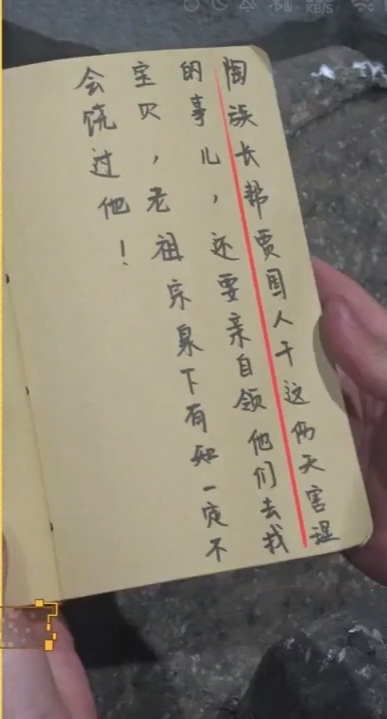 KB/S
陶族长帮贾国人干这伤天害理
的事儿，还要亲自领他们去找
宝贝，老祖宗泉下有知一定不
会饶过他！